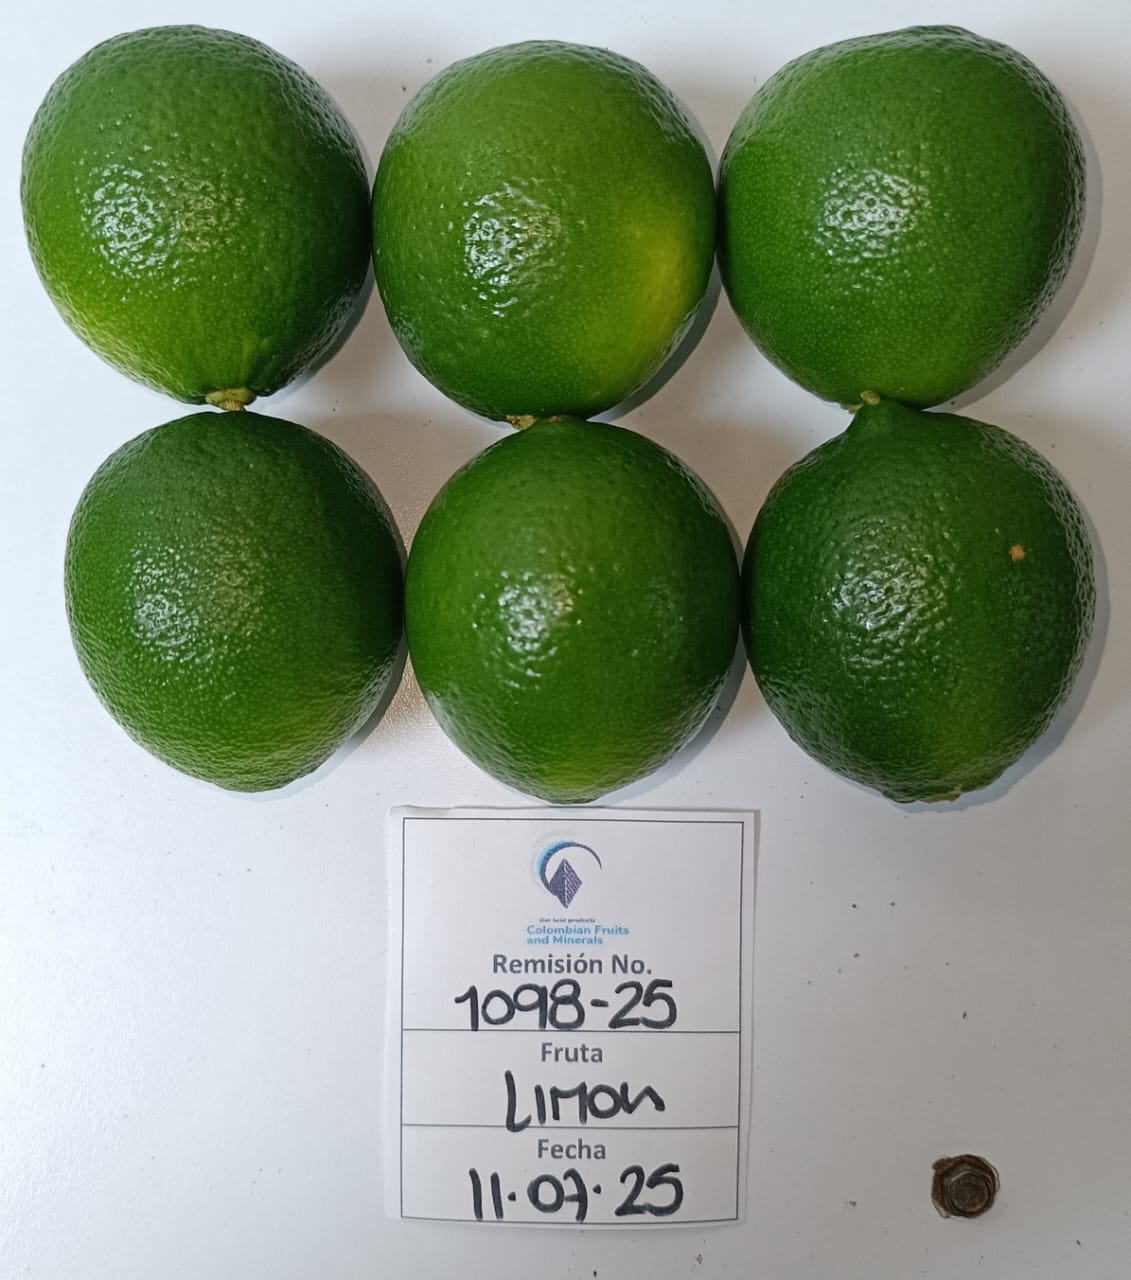 Our best products
Colombian Fruits
and Minerals
Remisión No.
1098-25
Fruta
LIMON
Fecha
11.07.25